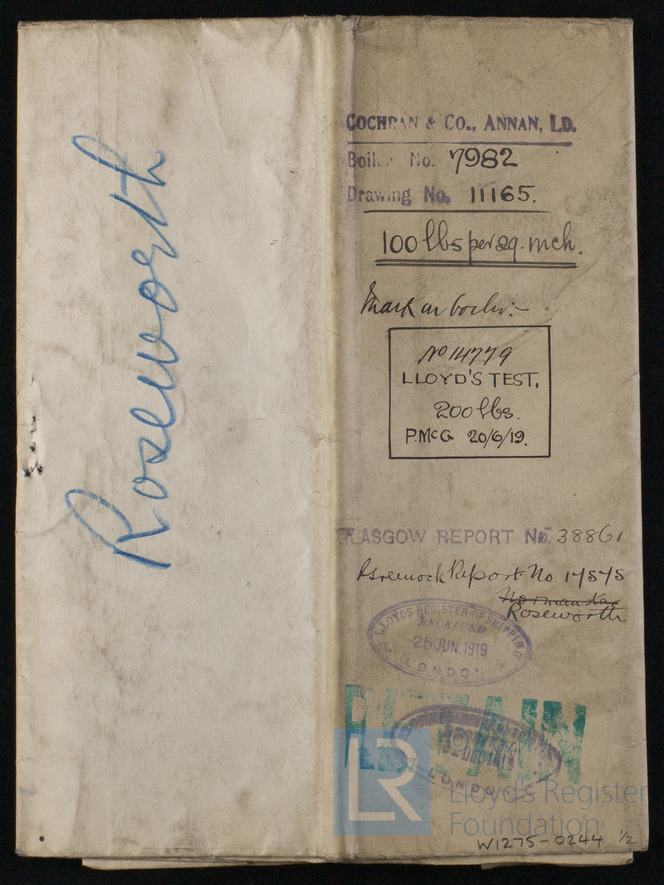 Roseworth
COCHRAN & CO., ANNAN, LD.
Boiler No. 7982
Drawing No. 11165.
100 lbs per sq. inch.
Mark on boiler:-
No 14779
LLOYD'S TEST.
200 lbs.
P.McG 20/6/19.
GLASGOW REPORT No. 38861
Greenock Report No. 17575
Roseworth
LLOYDS REGISTER OF SHIPPING
RECEIVED
25 JUN. 1919
LONDON
RETAIN
DEC 1919
LONDON
LR
Lloyd's Register
Foundation
W1275-0244 1/2